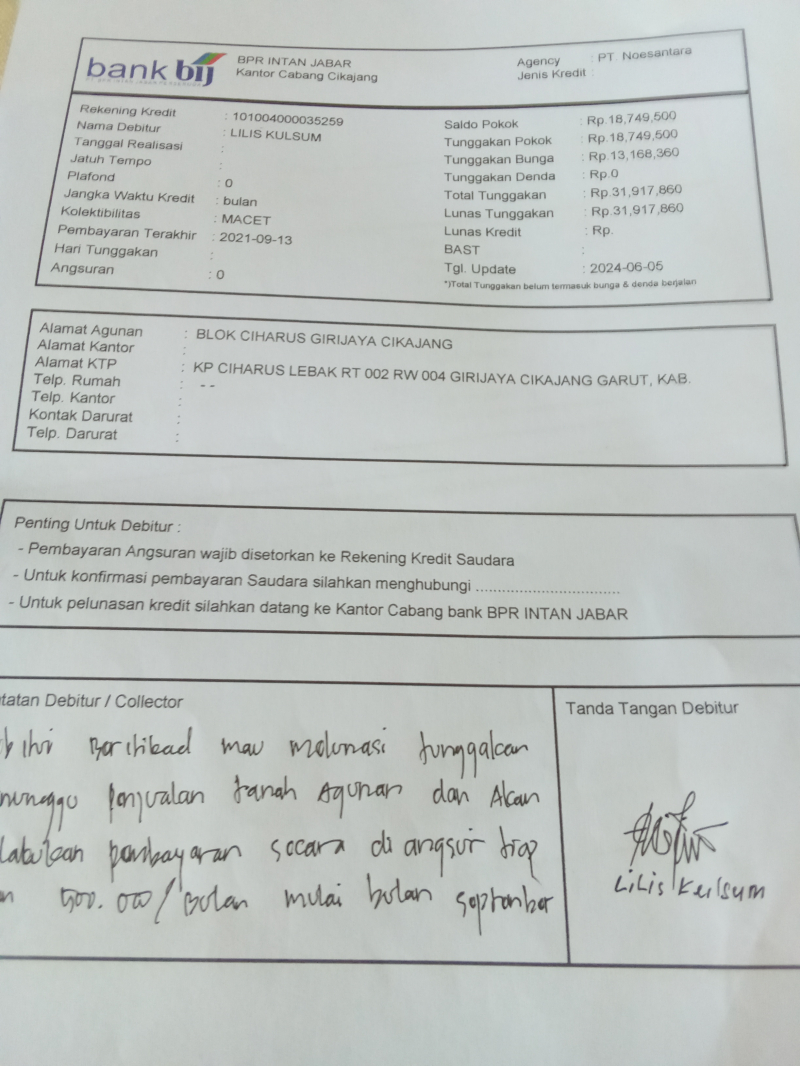 bank bij
BPR INTAN JABAR
Kantor Cabang Cikajang
Agency : PT. Noesantara
Jenis Kredit :
Rekening Kredit : 101004000035259
Nama Debitur : LILIS KULSUM
Tanggal Realisasi :
Jatuh Tempo :
Plafond : 0
Jangka Waktu Kredit : bulan
Kolektibilitas : MACET
Pembayaran Terakhir : 2021-09-13
Hari Tunggakan :
Angsuran : 0
Saldo Pokok : Rp.18,749,500
Tunggakan Pokok : Rp.18,749,500
Tunggakan Bunga : Rp.13,168,360
Tunggakan Denda : Rp.0
Total Tunggakan : Rp.31,917,860
Lunas Tunggakan : Rp.31,917,860
Lunas Kredit : Rp.
BAST :
Tgl. Update : 2024-06-05
*)Total Tunggakan belum termasuk bunga & denda berjalan
Alamat Agunan : BLOK CIHARUS GIRIJAYA CIKAJANG
Alamat Kantor :
Alamat KTP : KP CIHARUS LEBAK RT 002 RW 004 GIRIJAYA CIKAJANG GARUT, KAB.
Telp. Rumah : - -
Telp. Kantor :
Kontak Darurat :
Telp. Darurat :
Penting Untuk Debitur :
- Pembayaran Angsuran wajib disetorkan ke Rekening Kredit Saudara
- Untuk konfirmasi pembayaran Saudara silahkan menghubungi ..................................
- Untuk pelunasan kredit silahkan datang ke Kantor Cabang bank BPR INTAN JABAR
tatan Debitur / Collector
Beritikad mau melunasi tunggakan
nunggu penjualan tanah Agunan dan Akan
pembayaran secara di angsur tiap
500.000/Bulan mulai bulan September
Tanda Tangan Debitur
Lilis Kulsum